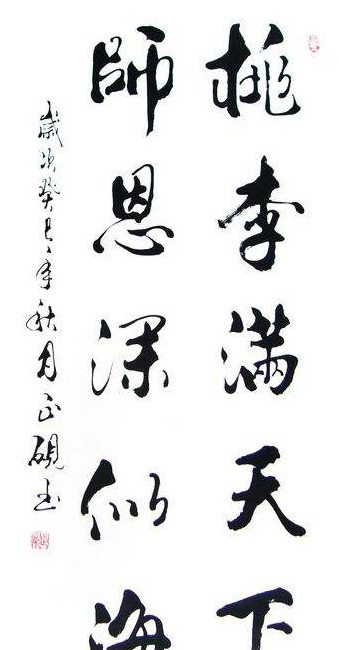 桃李滿天下
師恩深似海
歲次癸巳年秋月正硯書